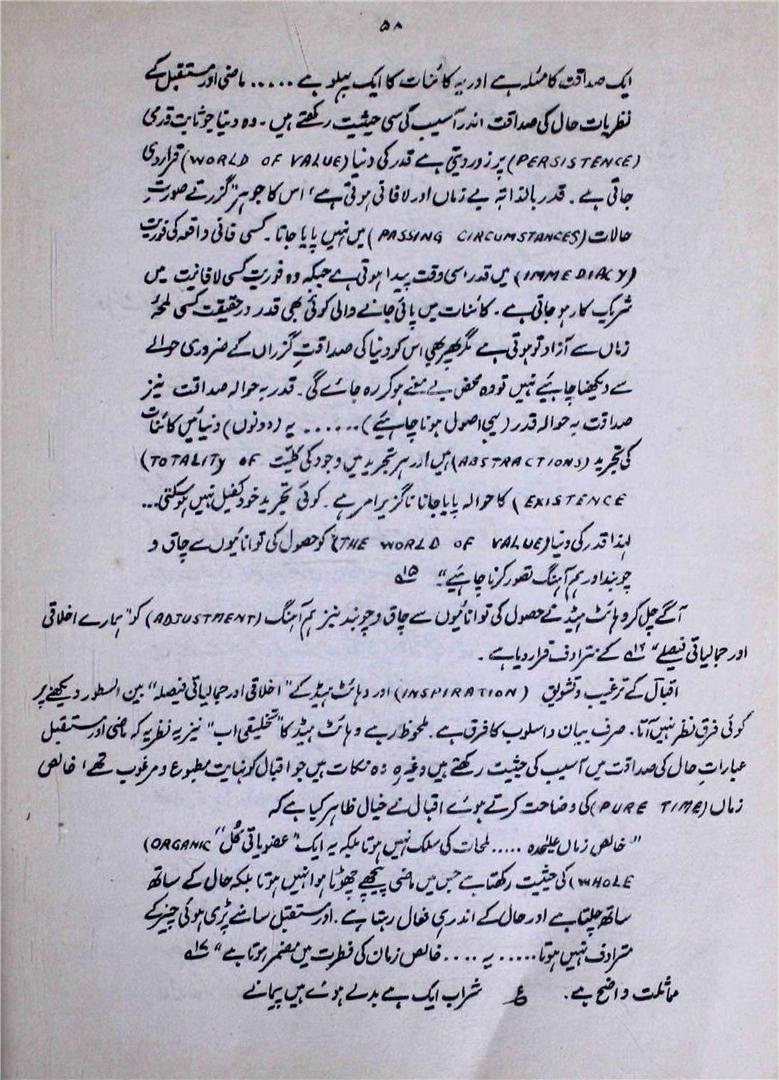 ۵۸
ایک صداقت کا مسئلہ ہے اور یہ کائنات کا ایک پہلو ہے ..... ماضی اور مستقبل کے
نظریات حال کی صداقت اندر آسیب کی سی حیثیت رکھتے ہیں ۔ وہ دنیا جو ثابت قدمی
(PERSISTENCE) پر زور دیتی ہے قدر کی دنیا (WORLD OF VALUE) قرار دی
جاتی ہے ۔ قدر بالذاتہ بے زماں اور لافانی ہوتی ہے، اس کا جوہر "گزرتے صورتِ
حالات (PASSING CIRCUMSTANCES) میں نہیں پایا جاتا ۔ کسی فانی واقعہ کی فوریت
(IMMEDIACY) میں قدر اسی وقت پیدا ہوتی ہے جبکہ وہ فوریت کسی لافانیت میں
شریک کار ہو جاتی ہے ۔ کائنات میں پائی جانے والی کوئی بھی قدر درحقیقت کسی لمحۂ
زماں سے آزاد تو ہوتی ہے مگر پھر بھی اس کو دنیا کی صداقتِ گزراں کے ضروری حوالے
سے دیکھنا چاہیئے نہیں تو وہ محض بے معنے ہو کر رہ جائے گی ۔ قدر بہ حوالہ صداقت نیز
صداقت بہ حوالہ قدر (یہی اصول ہونا چاہیئے) ...... یہ (دونوں) دنیائیں کائنات
کی تجرید (ABSTRACTIONS) ہیں اور ہر تجرید میں وجود کی کلیّت (TOTALITY OF
EXISTENCE) کا حوالہ پایا جانا ناگزیر امر ہے ۔ کوئی تجرید خود کفیل نہیں ہو سکتی...
لہذا قدر کی دنیا (THE WORLD OF VALUE) کو حصول کی توانائیوں سے چاق و
چوبند اور ہم آہنگ تصور کرنا چاہیے" ۱۵
آگے چل کر وہائٹ ہیڈ نے حصول کی توانائیوں سے چاق و چوبند نیز ہم آہنگ (ADJUSTMENT) کو "ہمارے اخلاقی
اور جمالیاتی فیصلے" ۱۶ کے مترادف قرار دیا ہے ۔
اقبال کے ترغیب و تشویق (INSPIRATION) اور وہائٹ ہیڈ کے "اخلاقی اور جمالیاتی فیصلہ" بین السطور دیکھنے پر
کوئی فرق نظر نہیں آتا ۔ صرف بیان و اسلوب کا فرق ہے ۔ ملحوظ رہے وہائٹ ہیڈ کا "تخلیقی اب" نیز یہ نظریہ کہ ماضی اور مستقبل
عبارات حال کی صداقت میں آسیب کی حیثیت رکھتے ہیں وغیرہ وہ نکات ہیں جو اقبال کو نہایت مطبوع و مرغوب تھے، خالص
زماں (PURE TIME) کی وضاحت کرتے ہوئے اقبال نے خیال ظاہر کیا ہے کہ
"خالص زماں علیحدہ ..... لمحات کی سلک نہیں ہوتا بلکہ یہ ایک "عضویاتی کُل" (ORGANIC
WHOLE) کی حیثیت رکھتا ہے جس میں ماضی پیچھے چھوٹا ہوا نہیں ہوتا بلکہ حال کے ساتھ
ساتھ چلتا ہے اور حال کے اندر ہی فعال رہتا ہے ۔ اور مستقبل سامنے پڑی ہوئی چیز کے
مترادف نہیں ہوتا ..... یہ .... خالص زمان کی فطرت میں مضمر ہوتا ہے" ۱۷
مماثلت واضح ہے ۔ ع شراب ایک ہے بدلے ہوئے ہیں پیمانے